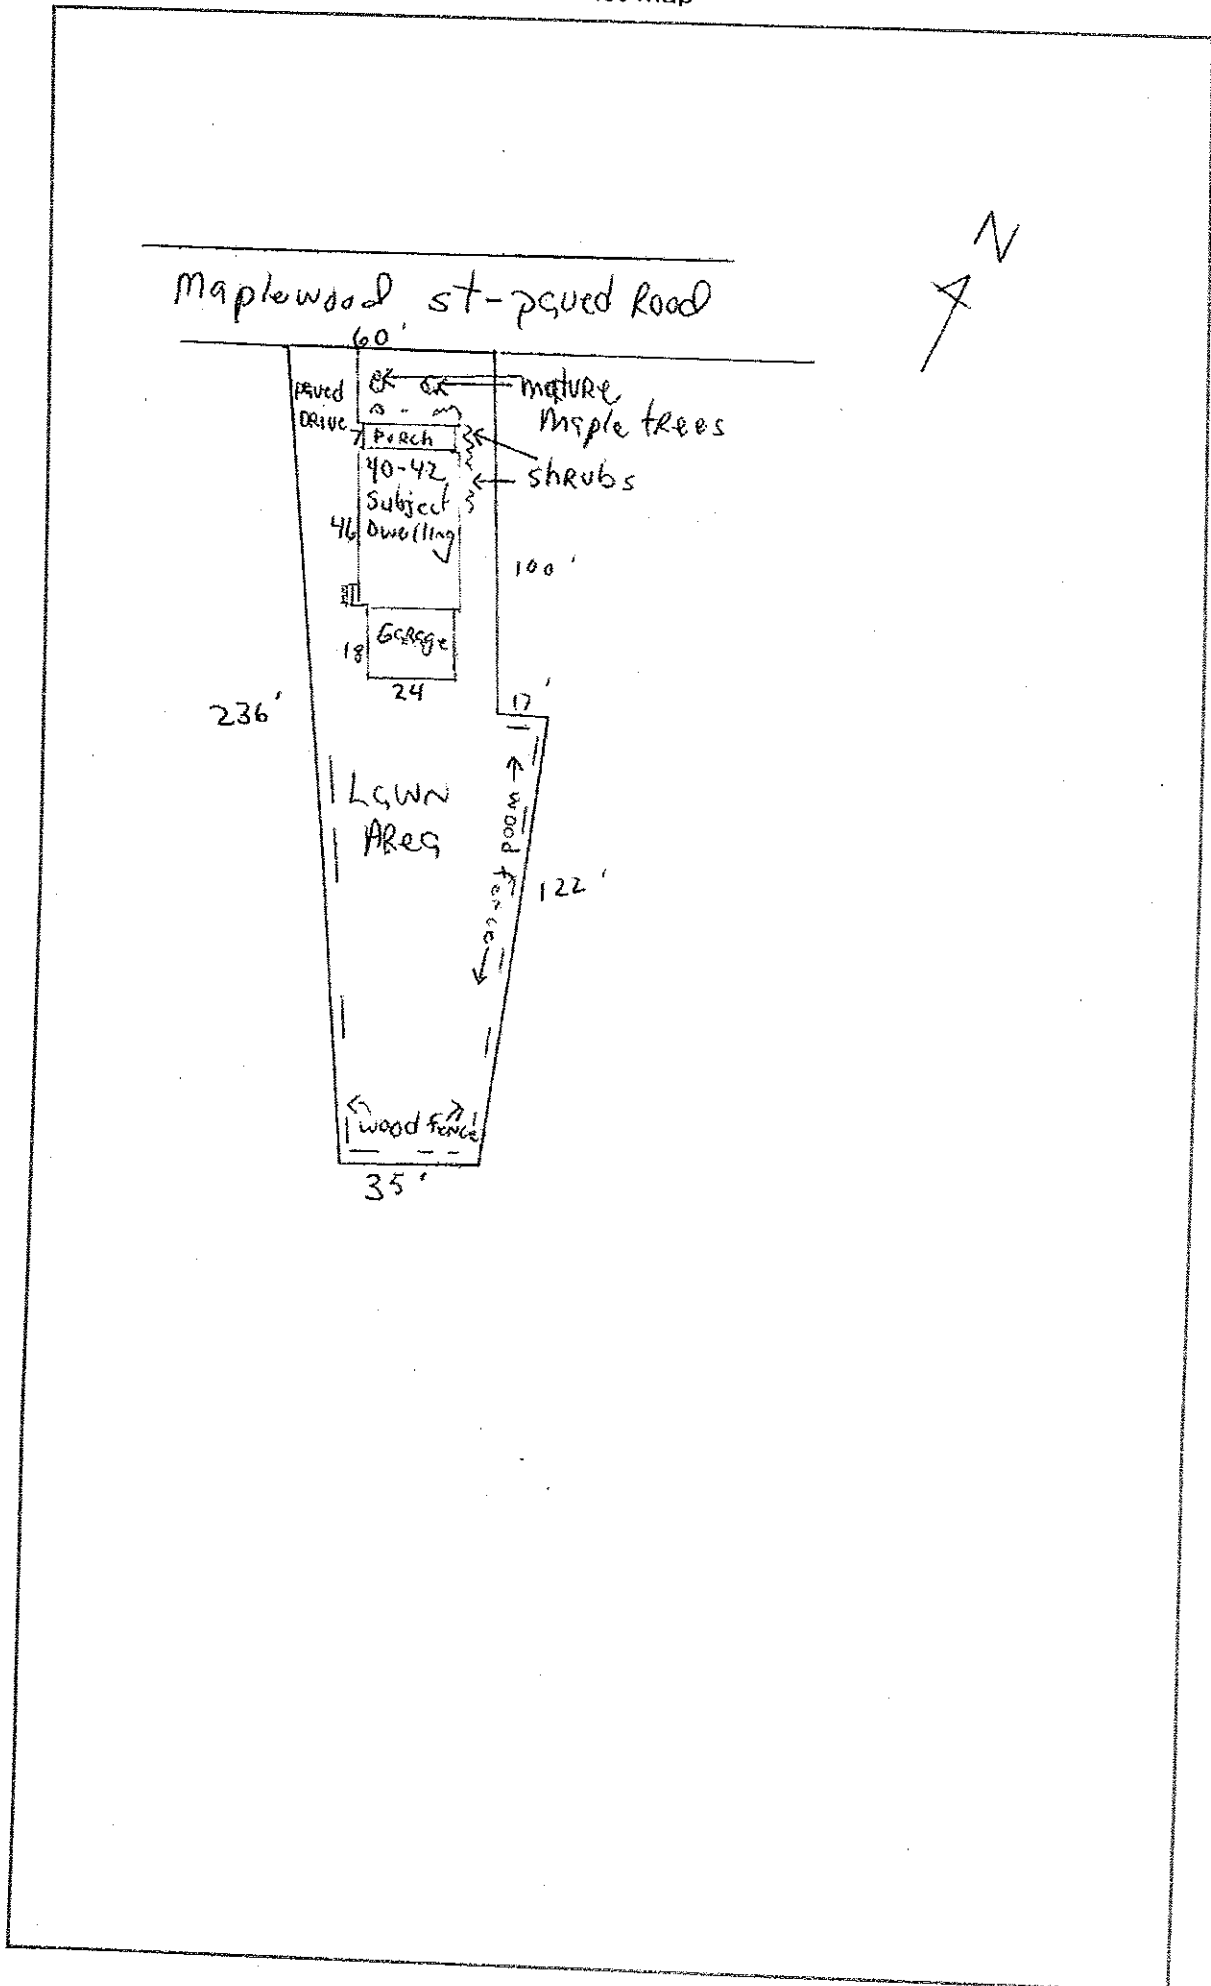 N
Maplewood st-paved Road
60'
paved
DRIVE
mature
Maple trees
7
Porch
shRubs
40-42
Subject
Dwelling
46
100'
Garage
18
24
17'
236'
LawN
Area
wood fence
122'
wood fence
35'